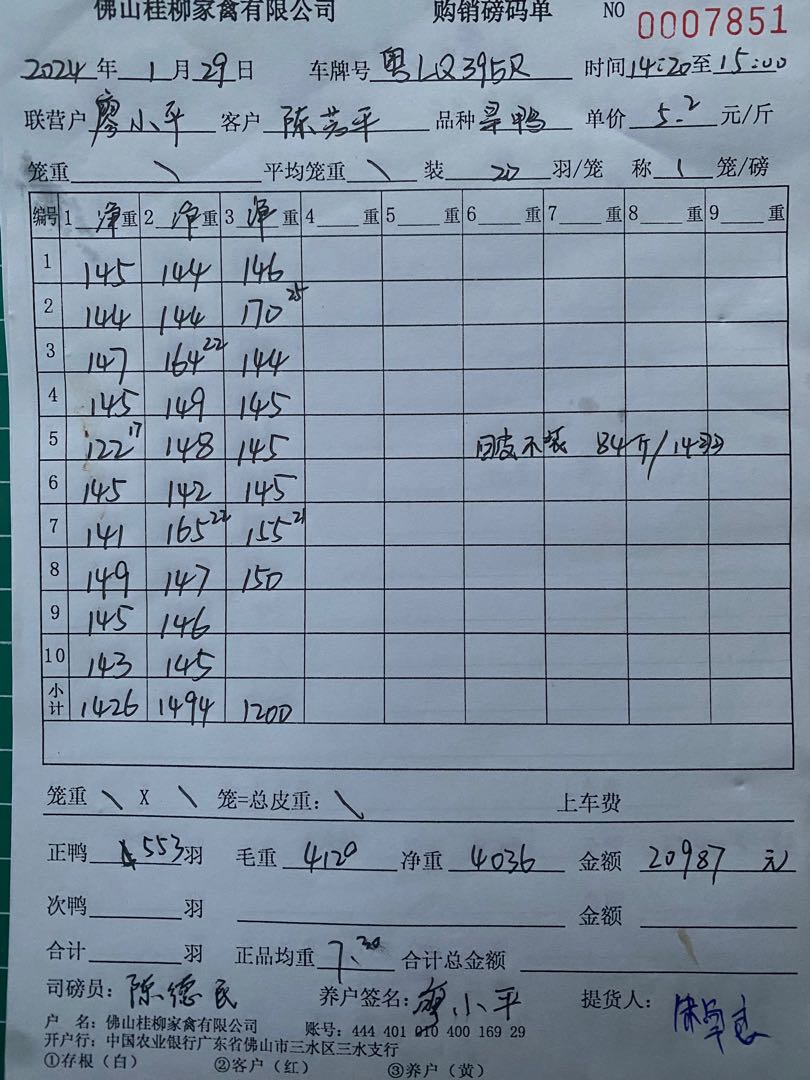 佛山桂柳家禽有限公司 购销磅码单 NO 0007851
2024年 1月29日 车牌号 粤LQ395R 时间14:20至15:00
联营户 廖小平 客户 品种 单价 5.2 元/斤
笼重 \ 平均笼重 \ 装 20 羽/笼 称 1 笼/磅
编号 1 净重 2 净重 3 净重 4 重 5 重 6 重 7 重 8 重 9 重
1 145 144 146
2 144 144 170 25
3 147 164 22 144
4 145 149 145
5 122 17 148 145 84斤/14羽
6 145 142 145
7 141 165 22 155 21
8 149 147 150
9 145 146
10 143 145
小计 1426 1494 1200
笼重 \ X \ 笼=总皮重: \ 上车费
正鸭 553羽 毛重 4120 净重 4036 金额 20987 元
次鸭 羽 金额
合计 羽 正品均重 7.30 合计总金额
司磅员: 陈德民 养户签名: 廖小平 提货人:
户 名: 佛山桂柳家禽有限公司 账号: 444 401 010 400 169 29
开户行: 中国农业银行广东省佛山市三水区三水支行
①存根（白） ②客户（红） ③养户（黄）